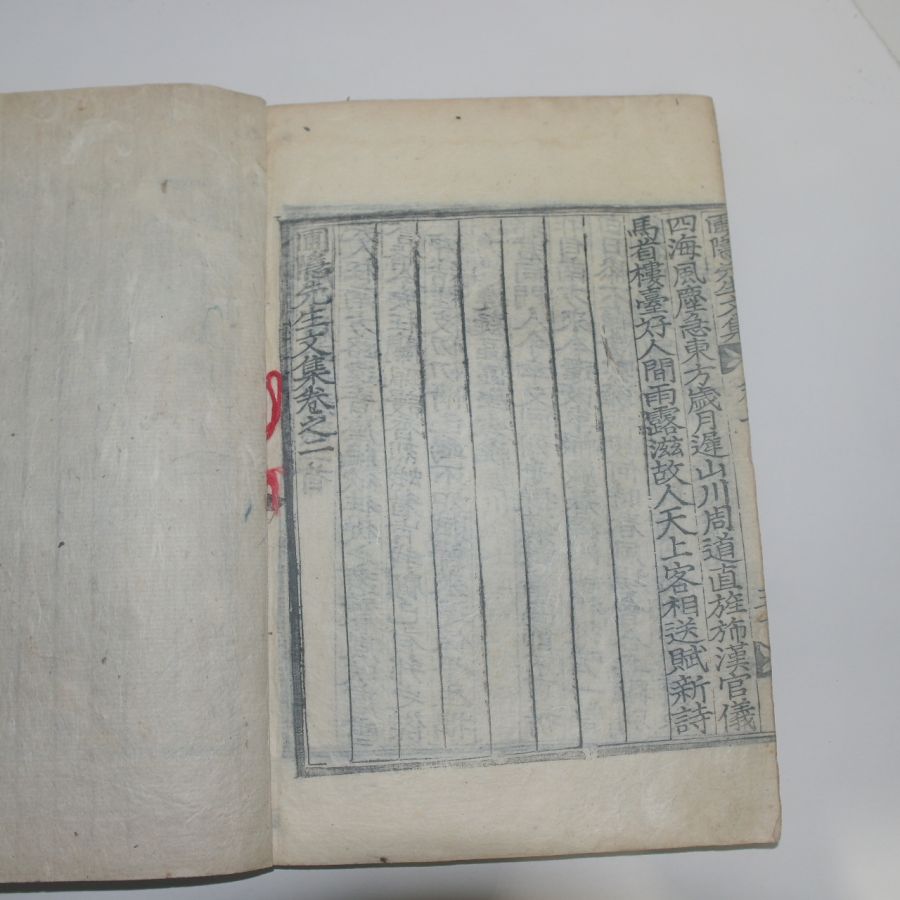 圃隱先生文集
四海風塵急東方歲月遲山川周道直旌斾漢官儀
馬首樓臺好人間雨露滋故人天上客相送賦新詩
圃隱先生文集卷之二